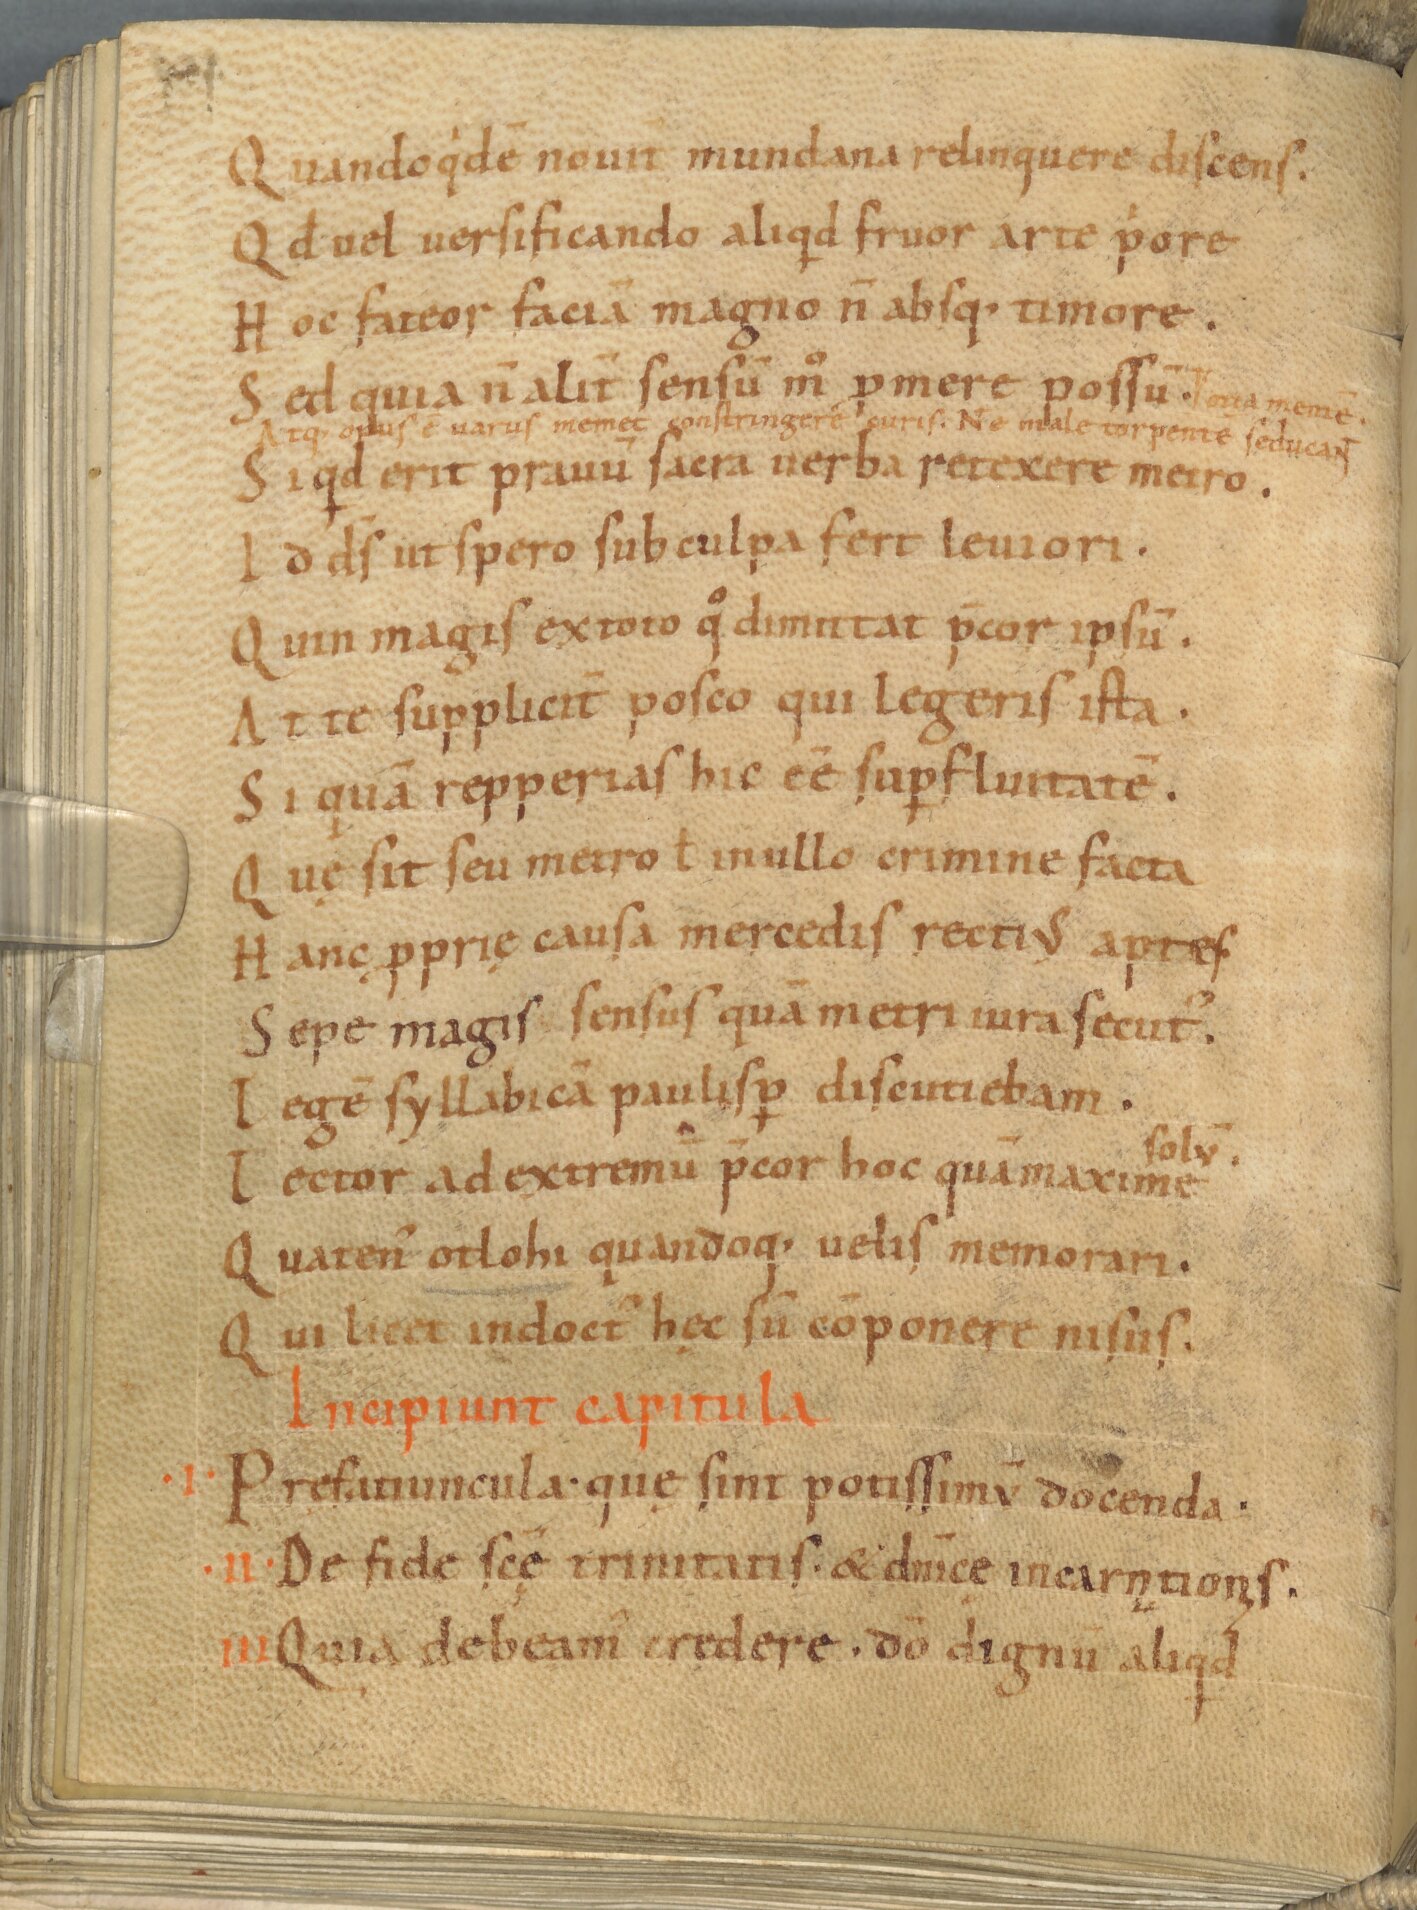 Quandoq̇dē nouit̄ mundana relinquere discens.
Qđ uel uersificando aliqđ fruor arte p̍ore
Hoc fateor faciā magno n̄ absq; timore.
Sed quia n̄ alit̄ sensū mͦ p̱mere possū.
Atq; opus ē uarus memet constringere curis. Ne male torpente seducat
Siqđ erit prauū sacra uerba retexere metro.
Id ds̄ ut spero sub culpa fert leuiori.
Quin magis ex toto qͦ dimittat p̄cor ipsū.
At te supplicit̄ posco qui legeris ista.
Si quā repperias hic eē sup̱fluitatē.
Quę sit seu metro ł in ullo crimine facta
Hanc ꝓprię causa mercedis rectiꝰ aptes
Sepe magis sensus quā metri iura secutꝰ.
Legē syllabicā paulisꝑ discutiebam.
solū.
Lector ad extremū p̄cor hoc quā maxime
Quatenꝰ otlohi quandoq; uelis memorari.
Qui licet indoctꝰ hęc sū cōponere nisus.
Incipiunt capitula
.I. Prefatiuncula. quę sint potissimū docenda.
.II. De fide scę̄ trinitatis. & dn̄icę incarnationis.
III Quia debeamꝰ credere. dō dignū aliqđ